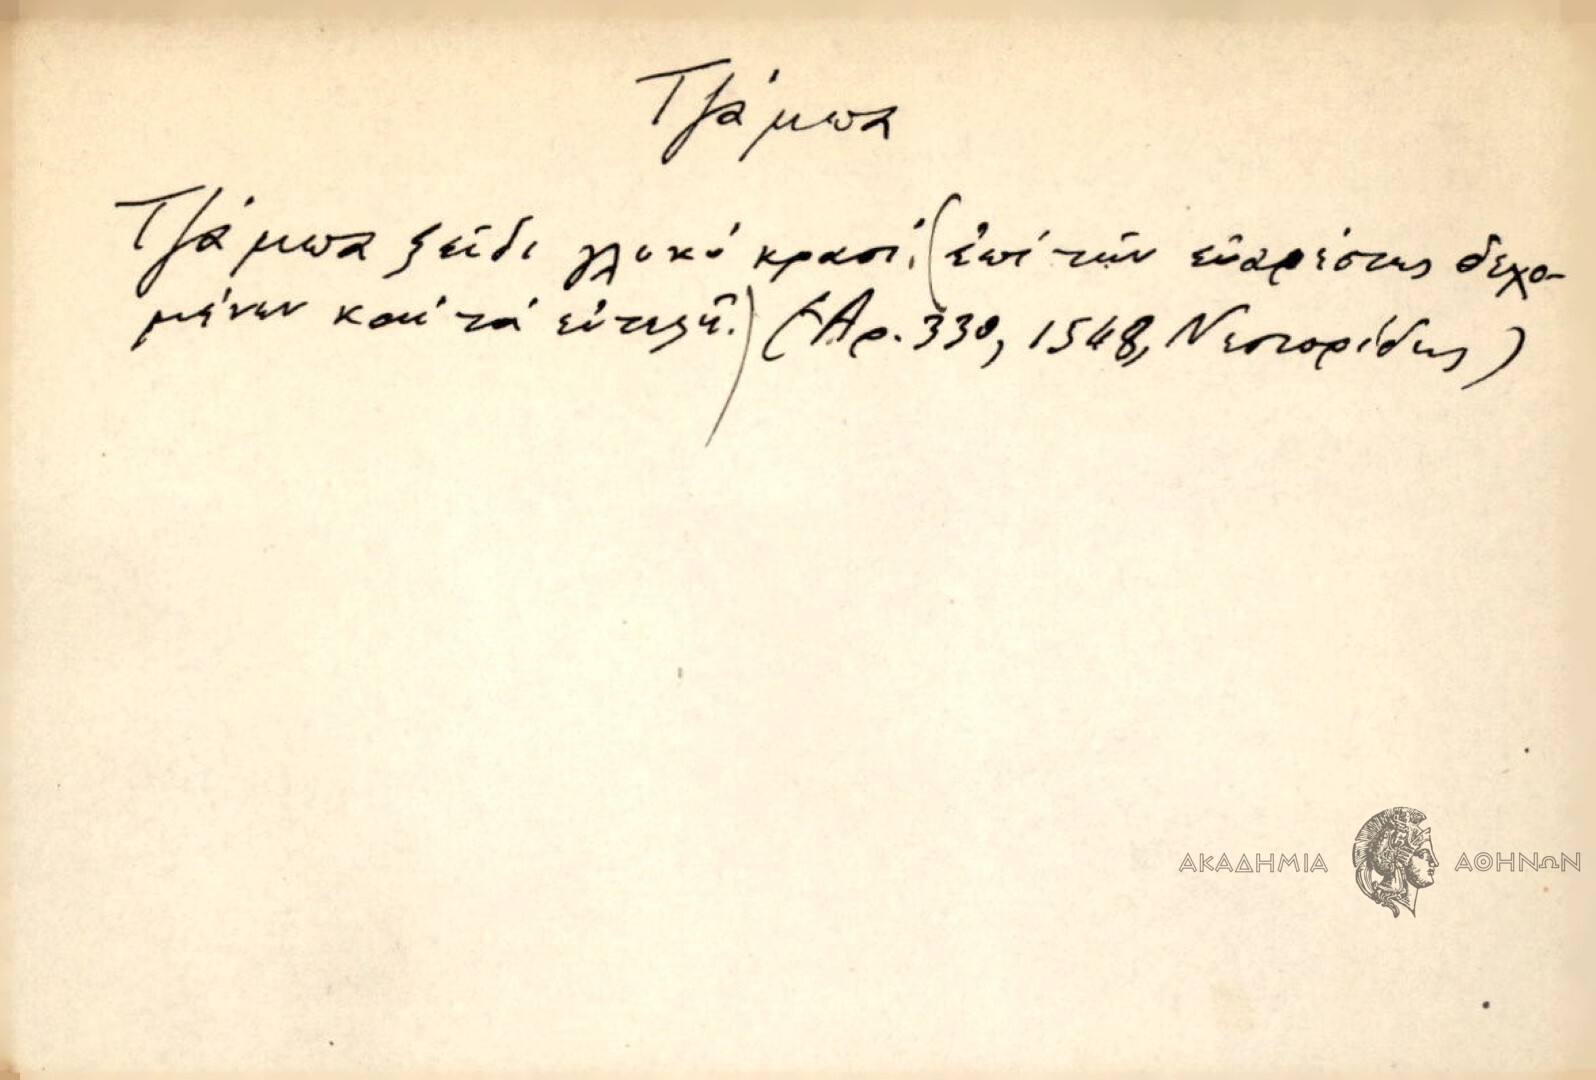 Τζάμπα
Τζάμπα ξεῖδι γλυκό κρασί. (ἐπί τῶν εὐαρέστως δεχο-
μένων καί τά εὐτελῆ.) (Ἀρ. 330, 1548, Νεστορίδης)
ΑΚΑΔΗΜΙΑ ΑΘΗΝΩΝ